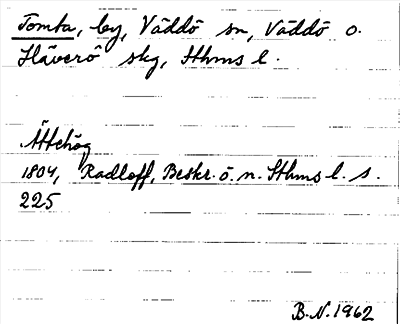 Tomta, by, Väddö sn, Väddö o.
Häverö skg, Sthms l.
Ättehög
1804, Radloff, Beskr. ö. n. Sthms l. s.
225
B.N. 1962